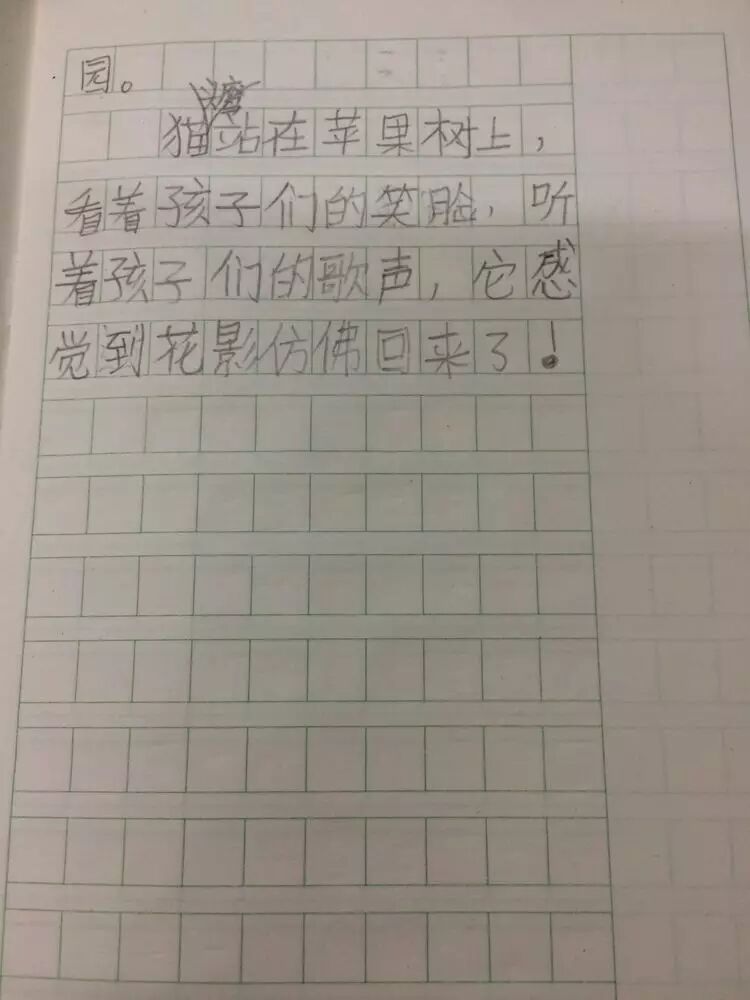 园。
猫站在苹果树上，
看着孩子们的笑脸，听
着孩子们的歌声，它感
觉到花影仿佛回来了！